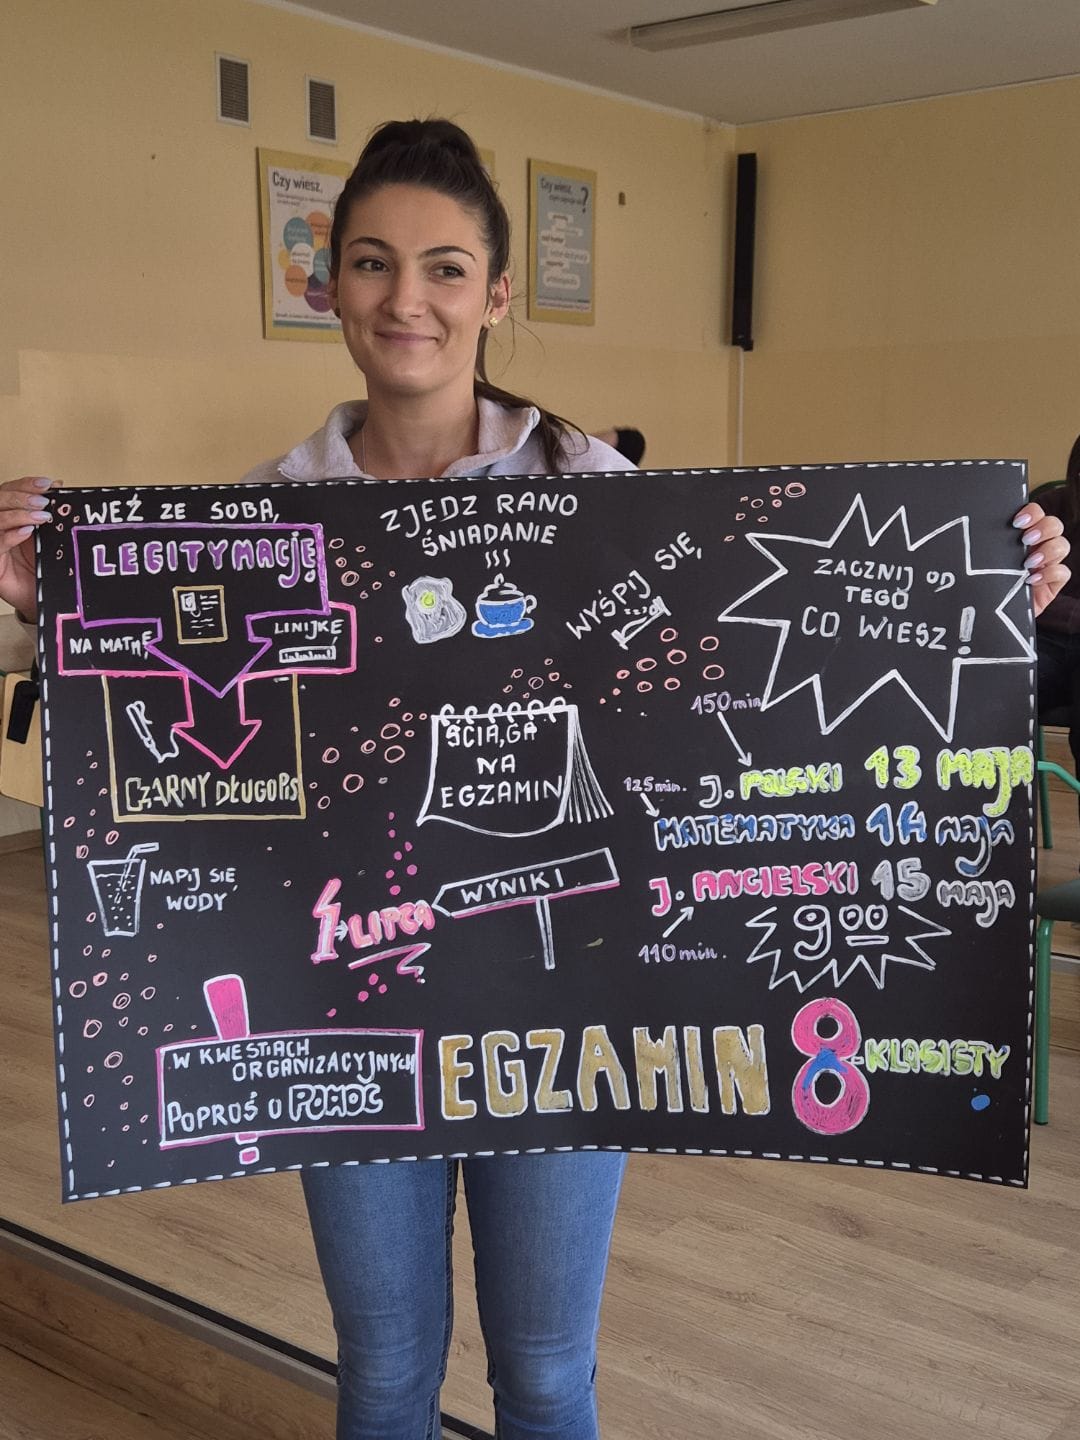 Czy wiesz,
Czy wiesz,
?
WEŹ ZE SOBĄ,
LEGITYMACJĘ
NA MATMĘ,
LINIJKĘ
CZARNY DŁUGOPIS
ZJEDZ RANO
ŚNIADANIE
WYŚPIJ SIĘ,
ZACZNIJ OD
TEGO
CO WIESZ!
ŚCIĄGA
NA
EGZAMIN
150 min.
J. POLSKI 13 MAJA
125 min.
MATEMATYKA 14 MAJA
J. ANGIELSKI 15 MAJA
110 min.
9 00
NAPIJ SIĘ
WODY
WYNIKI
LIPCA
W KWESTIACH
ORGANIZACYJNYCH
POPROŚ O POMOC
EGZAMIN 8-KLASISTY